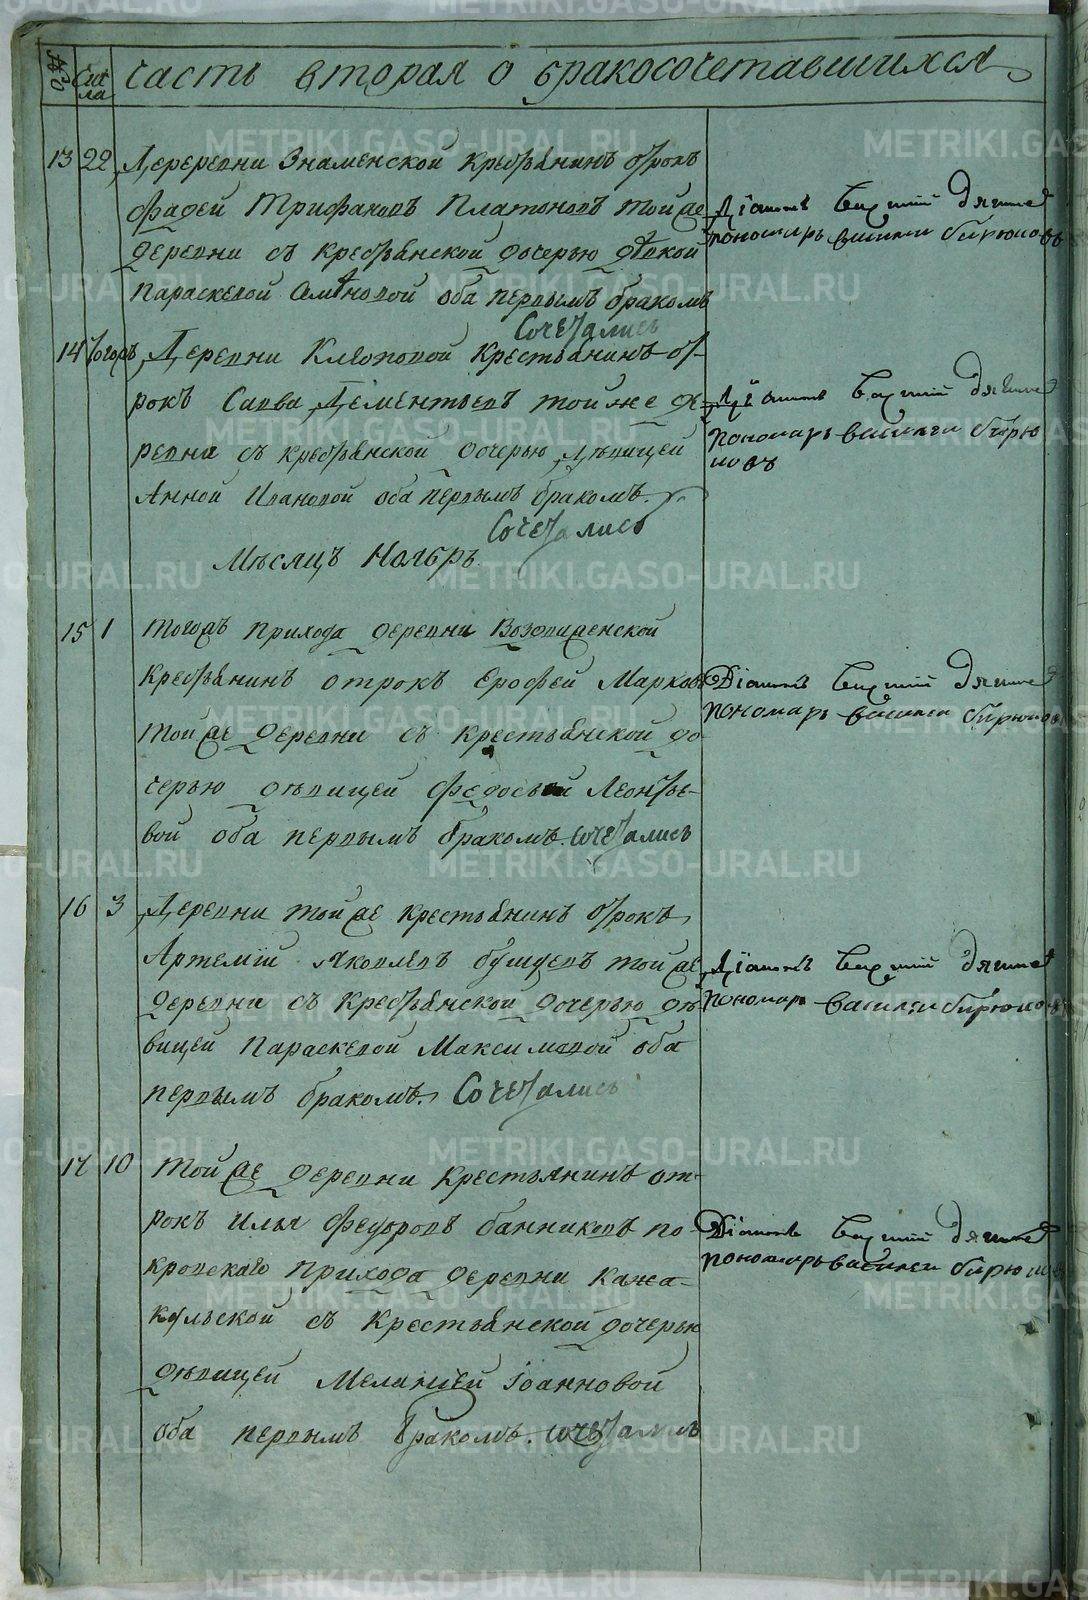 № Числа часть вторая о бракосочетавшихся
13 22 Деревни Знаменской крестьянинъ отрокъ
Фадей Трифановъ Платоновъ тойже
деревни съ крестьянской дочерью девкой
Параскевой Семеновой оба первымъ бракомъ
сочетались
Діаконъ
пономарь василеи бирюковъ
14 тогожъ Деревни Клеоповой крестьянинъ от-
рокъ Савва Дементьевъ тойже де-
ревни съ крестьянской дочерью девицей
Анной Ивановой оба первымъ бракомъ.
сочетались
Діаконъ
пономарь василеи бирю
ковъ
Месяцъ Ноябрь
15 1 тогожъ прихода деревни Воздвиженской
крестьянинъ отрокъ Ерофей Марковъ
тойже деревни съ крестьянской до-
черью девицей Федосьей Леонтье-
вой оба первымъ бракомъ. сочетались
Діаконъ
пономарь василеи бирюковъ
16 3 Деревни тойже крестьянинъ отрокъ
Артемій Яковлевъ бушуевъ тойже
деревни съ крестьянской дочерью де-
вицей Параскевой Максимовой оба
первымъ бракомъ. Сочетались
Діаконъ
пономарь василеи бирюковъ
17 10 тойже деревни крестьянинъ от-
рокъ Илья Федоровъ банниковъ по-
кровскаго прихода деревни Кажа-
кульской съ крестьянской дочерью
девицей Меланіей Іоанновой
оба первымъ бракомъ. сочетались
Діаконъ
пономарь василеи бирюковъ
METRIKI.GASO-URAL.RU